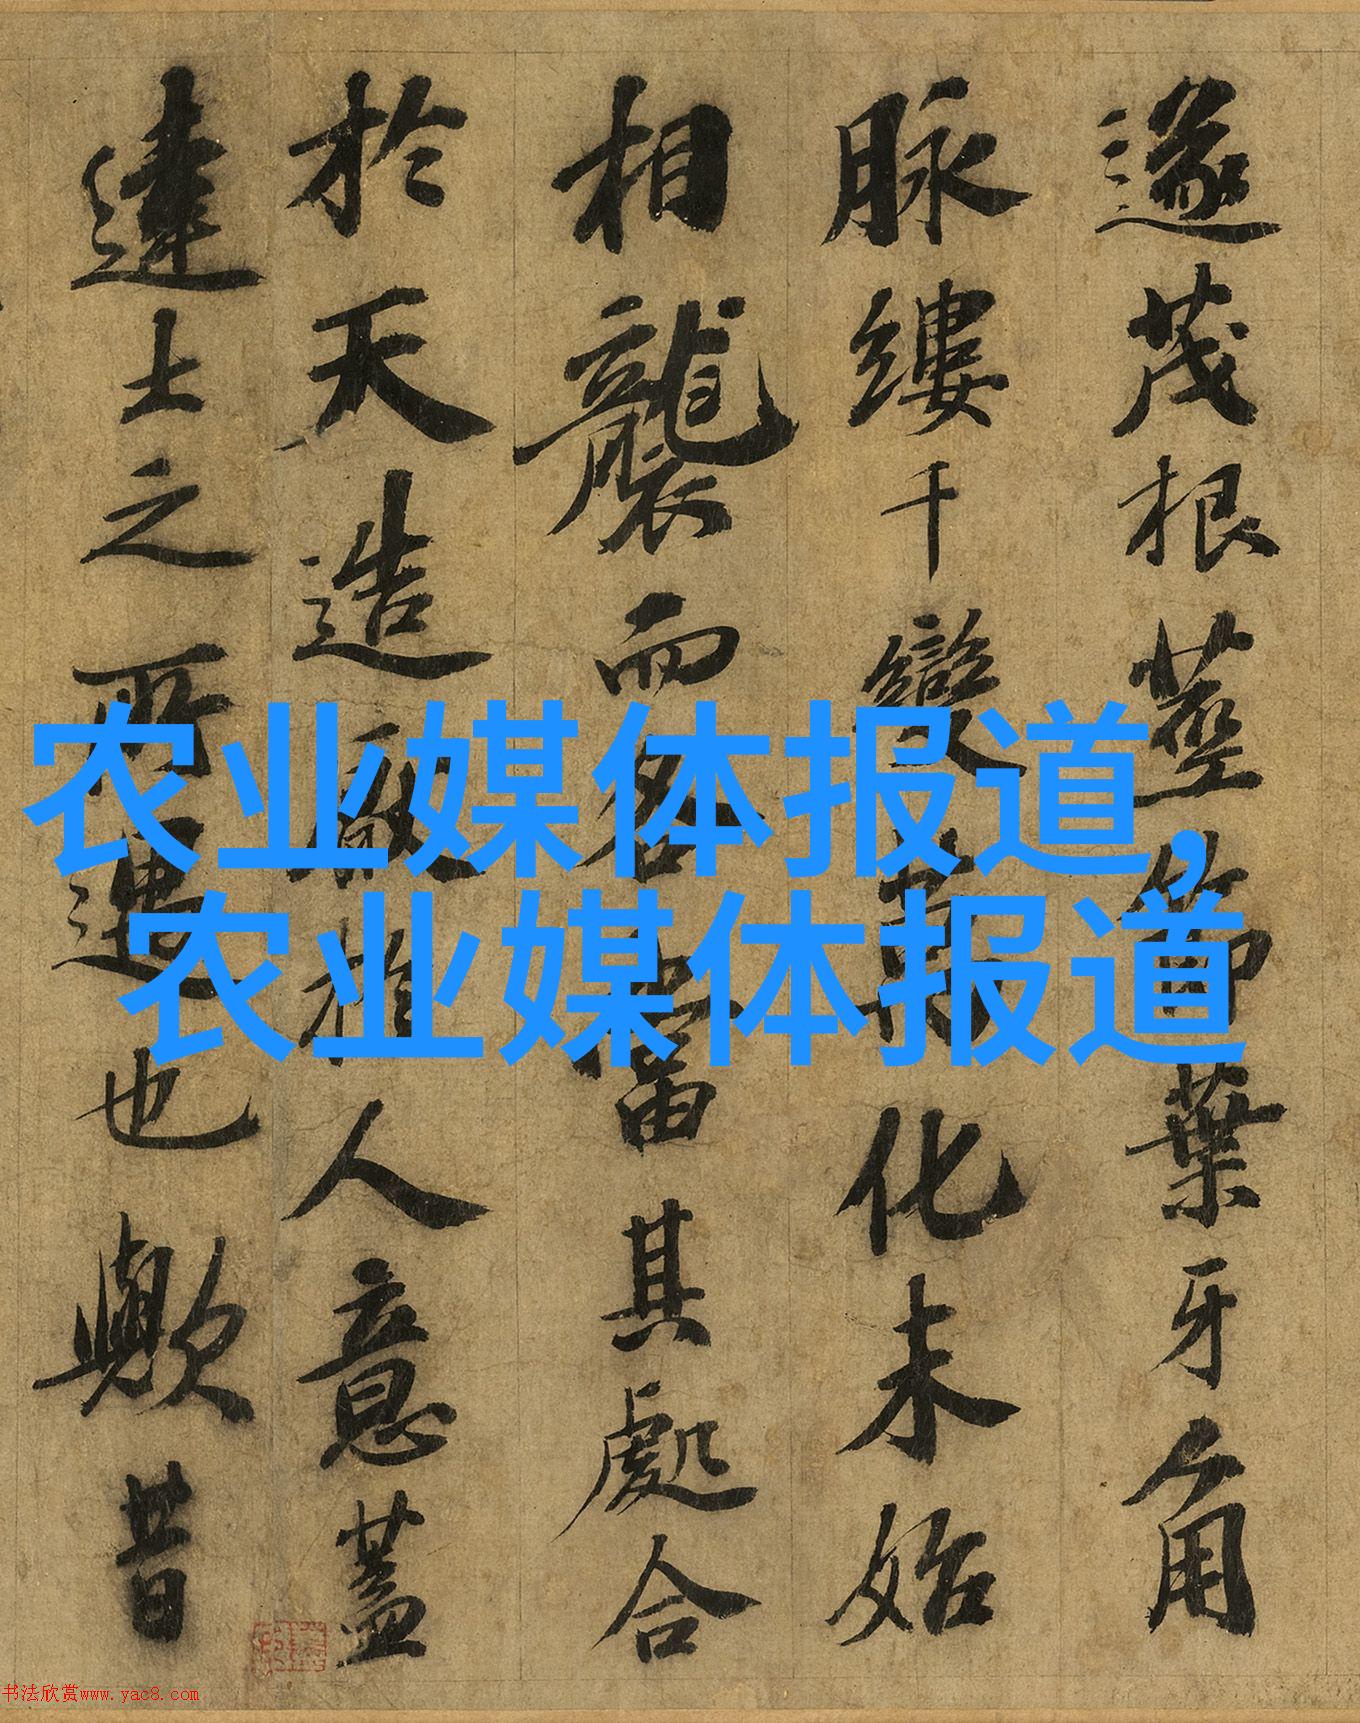 農业媒体报道,
农业媒体报道
遂茂根莖節葉牙角
脉縷千變萬化未始
相襲而各當其處合
於天造厭於人意蓋
達士之所遇也歟昔
书法欣赏www.yac8.com